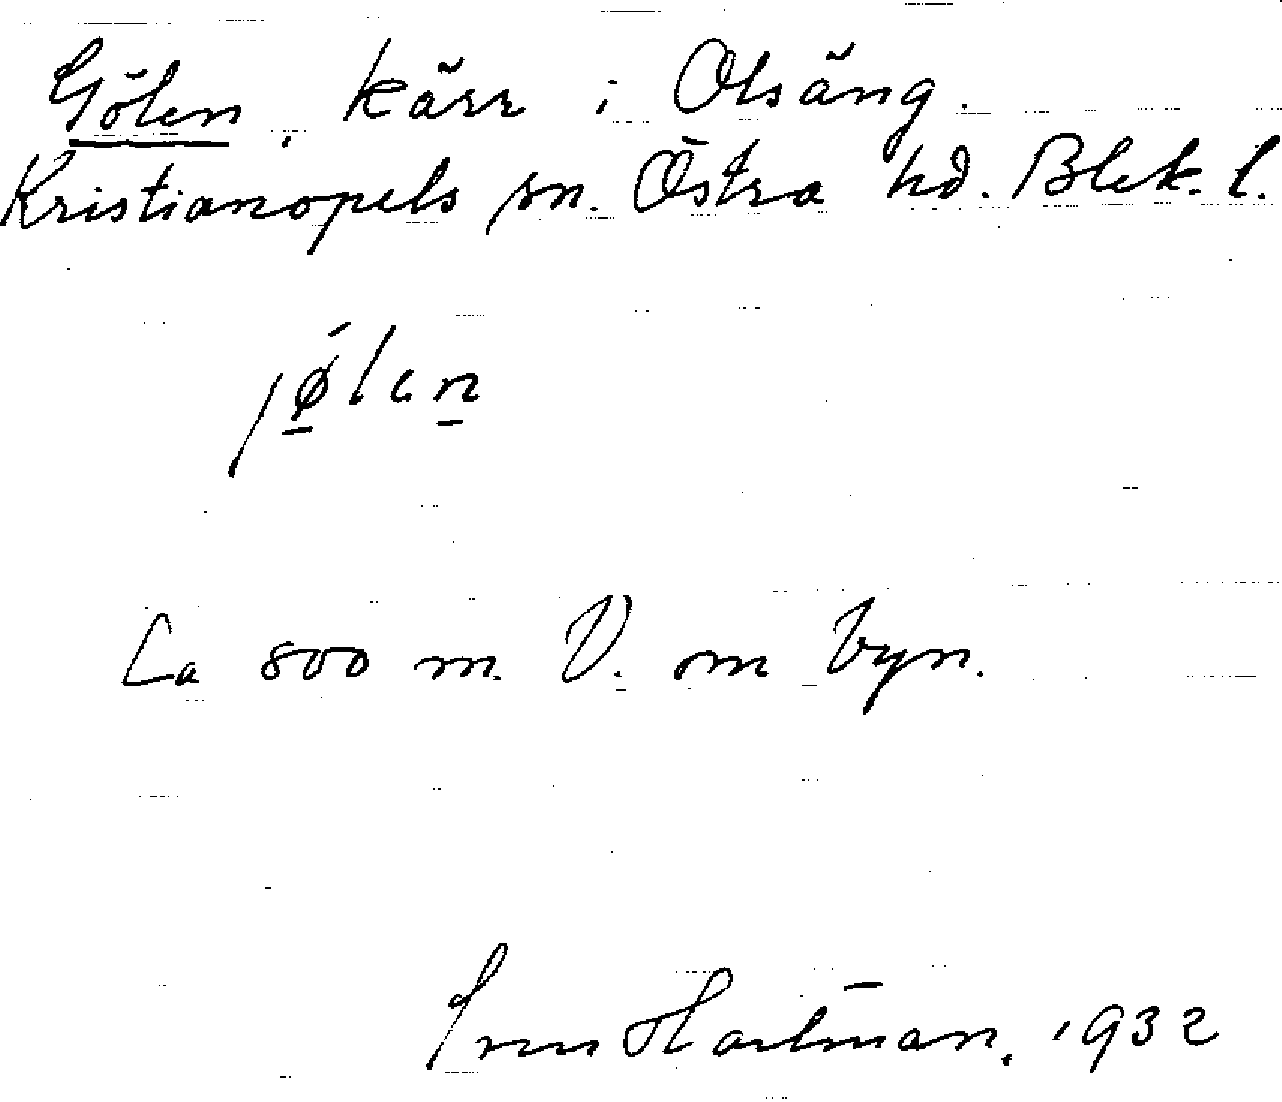 Gölen, kärr i Olsäng.
Kristianopels sn. Östra hd. Blek. l.
Ca 800 m. V. om byn.
Hartman. 1932